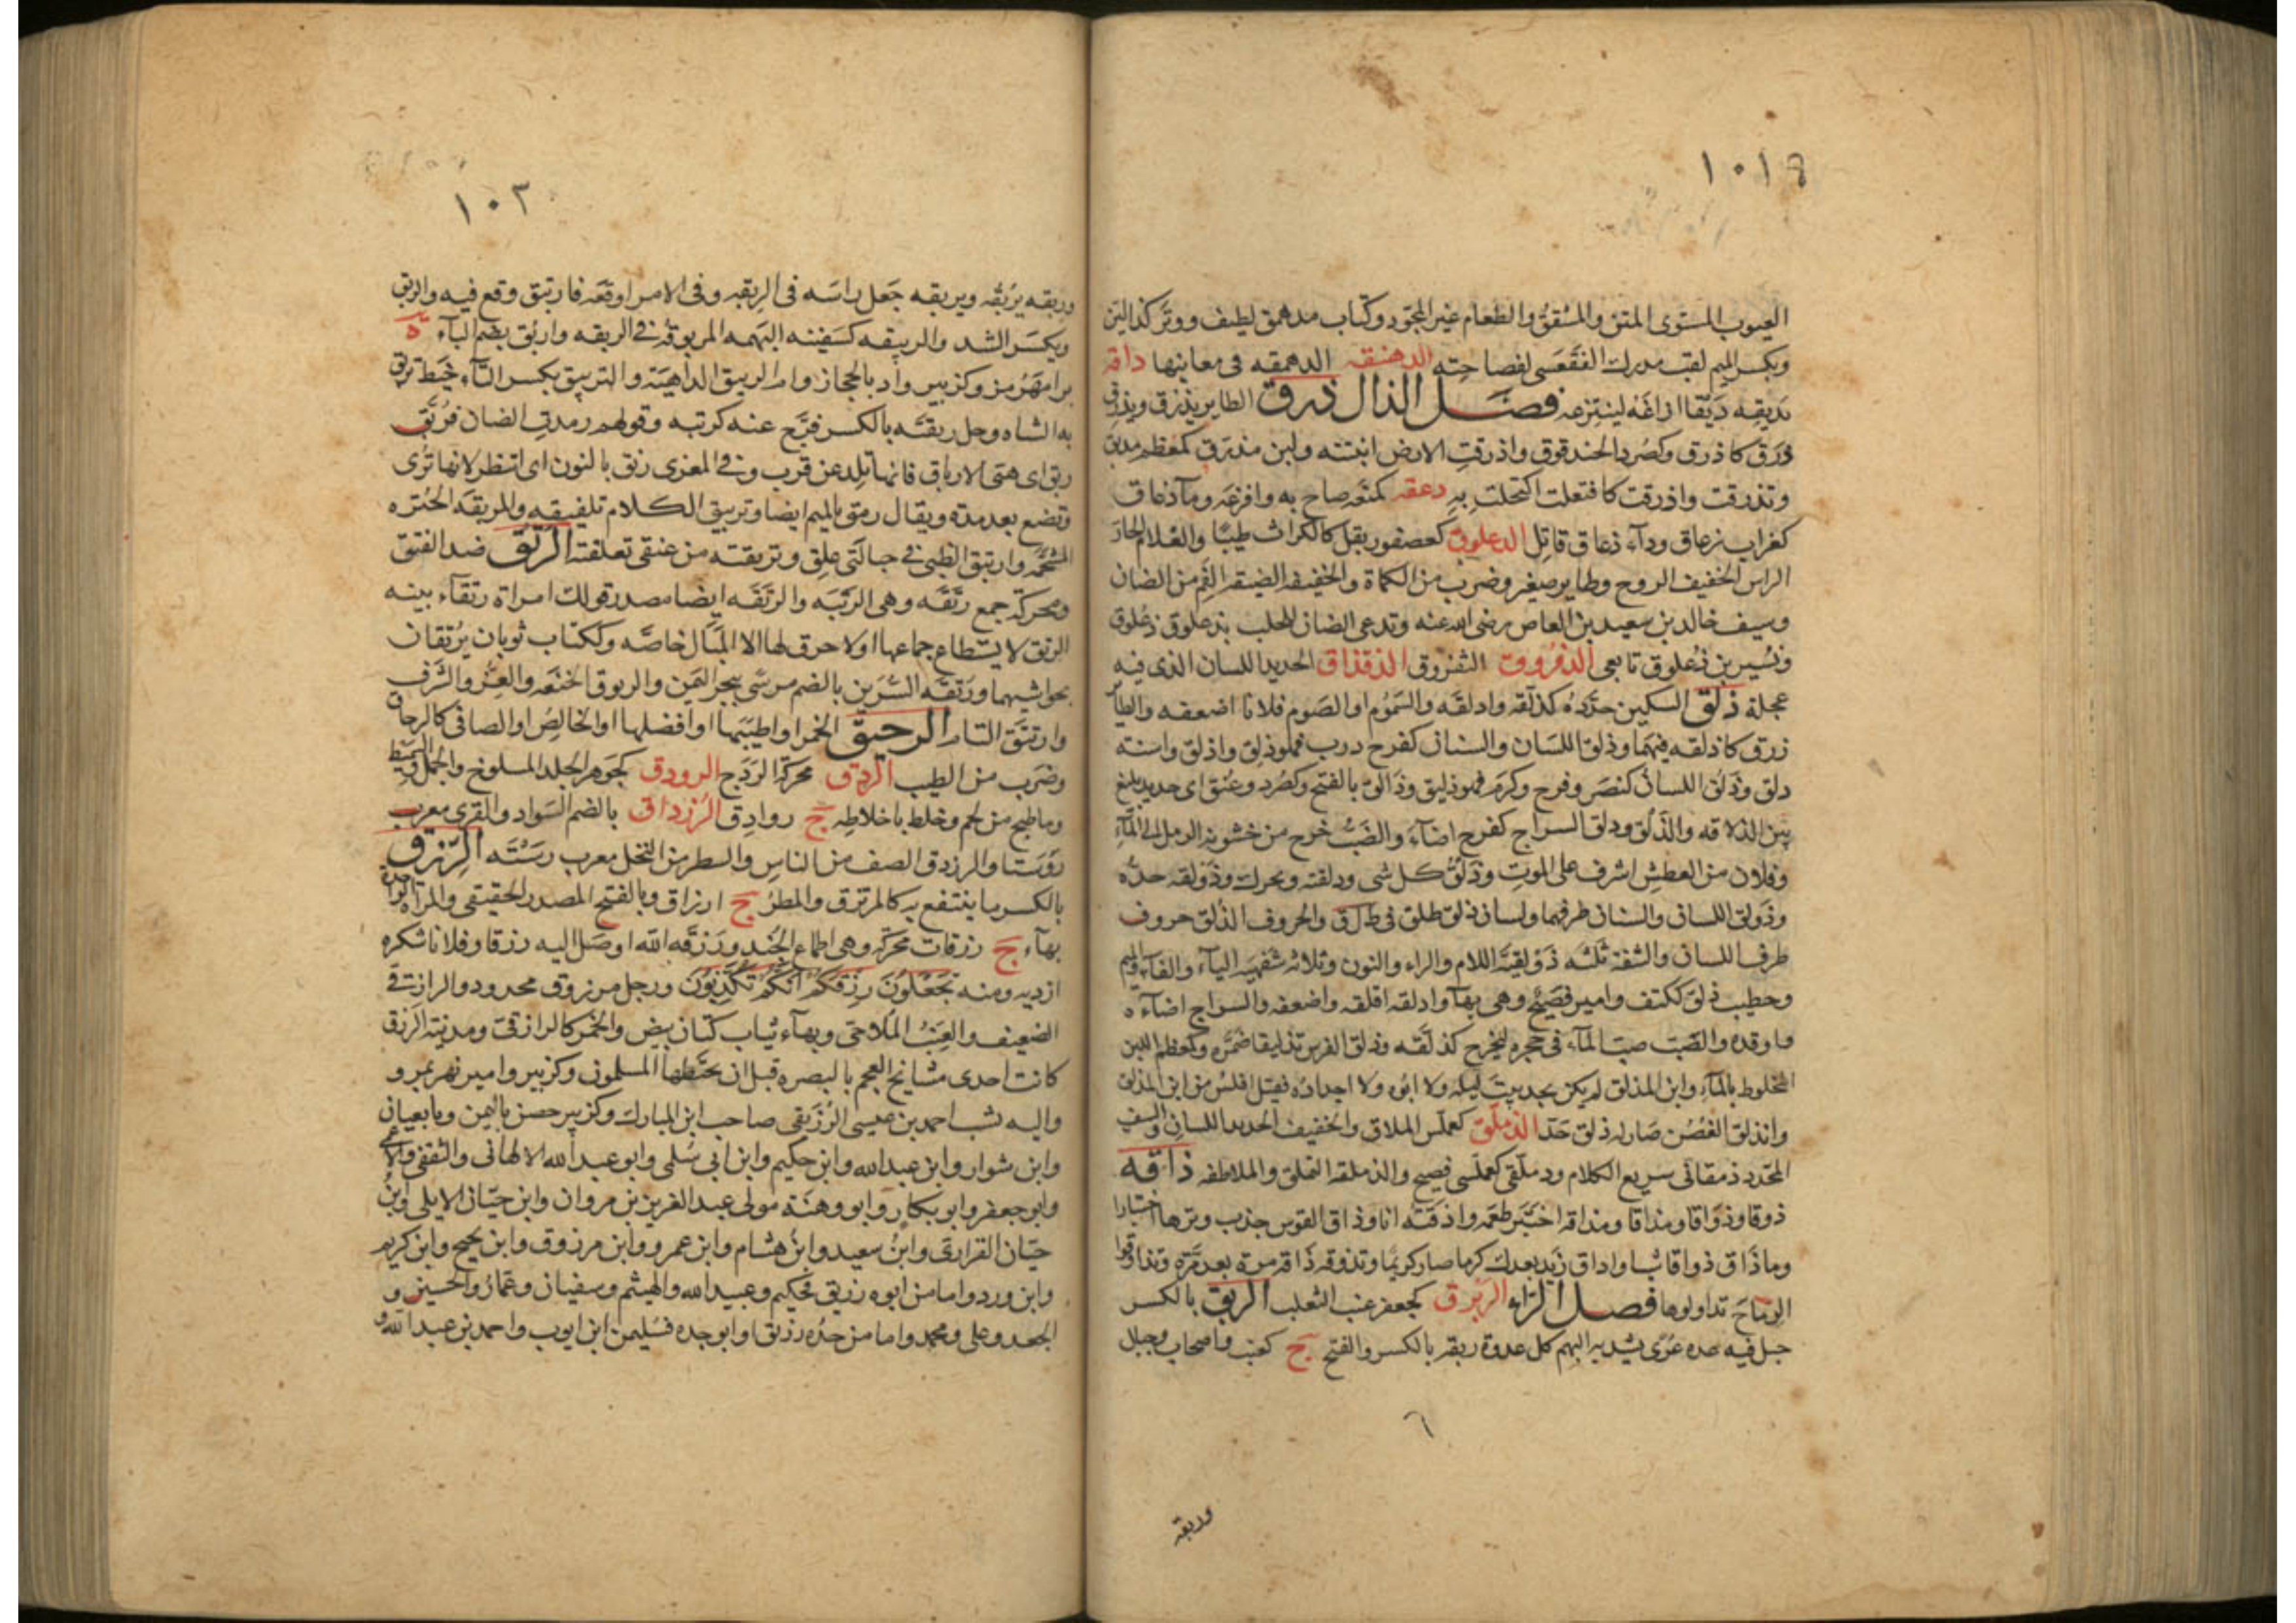 ١٠١
العيوب المستوى المتقن والمشقق والطعام غير المجود وكتاب مدهمق لطيف ووتر كذا لين
وبكسر الميم لقب مدرك الفقعسى لفصاحته الدهنقه الدهمقه فى معانيها داقه
يديقه ديقا اراغه لينتزعه فصل الذال ذرق الطاير يذرق ويذرق
ذرق كاذرق وكصرد الحندقوق واذرقت الارض انبتته ولبن مذرق كمعظم مذيق
وتذرقت واذرقت كافتعلت اكتحلت به ذعقه كمنعه صاح به وافزعه وماء ذعاق
كغراب زعاق وداء ذعاق قاتل الذعلوق كعصفور بقل كالكراث طيبا والغلام الحار
الراس الخفيف الروح وطاير صغير وضرب من الكماة والخفيف الضيق الفم من الضان
وسيف خالد بن سعيد بن العاص رضى الله عنه وتدعى الضان للحلب بذعلوق ذعلوق
ونسير بن ذعلوق تابعى الذفروق الثفروق الذقذاق الحديد اللسان الذى فيه
عجلة ذلق السكين حدده كذلقه واذلقه والسموم او الصوم فلانا اضعفه والطاير
زرق كاذلقه فيهما وذلق اللسان والسنان كفرح درب فهو ذلق واذلق واسنه
ذلق وذلق اللسان كنصر وفرح وكرم فهو ذليق وذالق بالفتح وكصرد وعنق اى حديد بليغ
بين الذلاقه والذلق وذلق السراج كفرح اضاء والضب خرج من خشونه الرمل الى الماء
وفلان من العطش اشرف على الموت وذلق كل شى وذلقته ويحرك وذولقه حده
وذولق اللسان والسنان طرفهما ولسان ذلق طلق فى ط ل ق والحروف الذلق حروف
طرف اللسان والشفة ثلثه ذولقية اللام والراء والنون وثلاثه شفهيه الباء والفاء والميم
وخطيب ذلق ككتف وامير فصيح وهى بهاء واذلقه اقلقه واضعفه والسراج اضاءه
واوقده والضب صب الماء فى جحره ليخرج كذلقه وذلق الفرس تذليقا ضمره وكمعظم اللبن
المخلوط بالماء وابن المذلق لم يكن يجد بيت ليله ولا ابوه ولا اجداده فقيل افلس من ابن المذلق
وانذلق الغصن صار له ذلق حد الذملق كعملس الملاق والخفيف الحديد اللسان والسيف
المحدد ذمقانى سريع الكلام وذملقى كعملسى فصيح والذملقه التملق والملاطفه ذاقه
ذوقا وذواقا ومذاقا ومذاقه اختبر طعمه واذقته انا وذاق القوس جذب وترها اختبارا
وما ذاق ذواقا شيا واذاق زيد بعدك كرما صار كريما وتذوقه ذاقه مرة بعد مرة وتذاوقوا
الرماح تداولوها فصل الراء الربرق كجعفر عنب الثعلب الربق بالكسر
حبل فيه عده عرى يشد به البهم كل عروة ربقه بالكسر والفتح ج كعنب واصحاب وجبال
٦
وربقه
١٠٢
وربقه يربقه ويربقه جعل راسه فى الربقه وفى الامر اوقعه فارتبق وقع فيه والربق
ويكسر الشد والربيقه كسفينه البهمه المربوقة فى الربقه واربق بضم الباء ة
برامهرمز وكزبير واد بالحجاز وام الربيق الداهية والتربيق بكسر التاء خيط تربق
به الشاه وحل ربقته بالكسر فرج عنه كربته وقولهم رمدت الضان فربق
ربق اى هيئ الارباق فانها تلد عن قرب وفى المعزى رنق بالنون اى انتظر لانها ترى
وتضع بعد مدة ويقال رمق بالميم ايضا وتربيق الكلام تلفيقه والمربقه الخبزه
المشحمه وارتبق الظبى فى حبالتى علق وتربقته من عنقى تعلقته الرتق ضد الفتق
ومحركة جمع رتقه وهى الرتبه والرتقه ايضا مصدر قولك امراة رتقاء بينه
الرتق لا يستطاع جماعها او لا خرق لها الا المبال خاصه وككتاب ثوبان يرتقان
بحواشيهما ورتقه السرين بالضم مرسى ببحر اليمن والرتوق الخنعه والعز والشرف
وارتتق التام الرحيق الخمر او اطيبها او افضلها او الخالص او الصافى كالرحاق
وضرب من الطيب الردق محركة الردج الرودق كجوهر الجلد المسلوخ والحمل السميط
وما طبخ من لحم وخلط باخلاطه ج روادق الرزداق بالضم السواد والقرى معرب
روستا والرزدق الصف من الناس والسطر من النخل معرب رسته الرزق
بالكسر ما ينتفع به كالمرتزق والمطر ج ارزاق وبالفتح المصدر الحقيقى والمرة الواحدة
بهاء ج رزقات محركة وهى اطماع الجند ورزقه الله اوصل اليه رزقا وفلانا شكره
ازديه ومنه تجعلون رزقكم انكم تكذبون ورجل مرزوق مجدود والرازقى
الضعيف والعنب الملاحى وبهاء ثياب كتان بيض والخمر كالرازقى ومدينة الرزق
كانت احدى مشايخ العجم بالبصره قبل ان يختطها المسلمون وكزبير وامير نهر بمرو
واليه نسب احمد بن عيسى الرزيقى صاحب ابن المبارك وكزبير حصن باليمن وتابعيان
وابن شوار وابن عبدالله وابن حكيم وابن ابى سلمى وابو عبدالله الالهانى والثقفى والاعمى
وابو جعفر وابو بكار وابو وهنة مولى عبدالعزيز بن مروان وابن حيان الايلى وابن
حيان الفزارى وابن سعيد وابن هشام وابن عمرو وابن مرزوق وابن نجيح وابن كريم
وابن ورد واما من ابوه رزيق فحكيم وعبيد الله والهيثم وسفيان وعمار والحسين و
الجعد وعلى ومحمد واما من جده رزيق او ابو جده فسليمن ابن ايوب واحمد بن عبدالله و